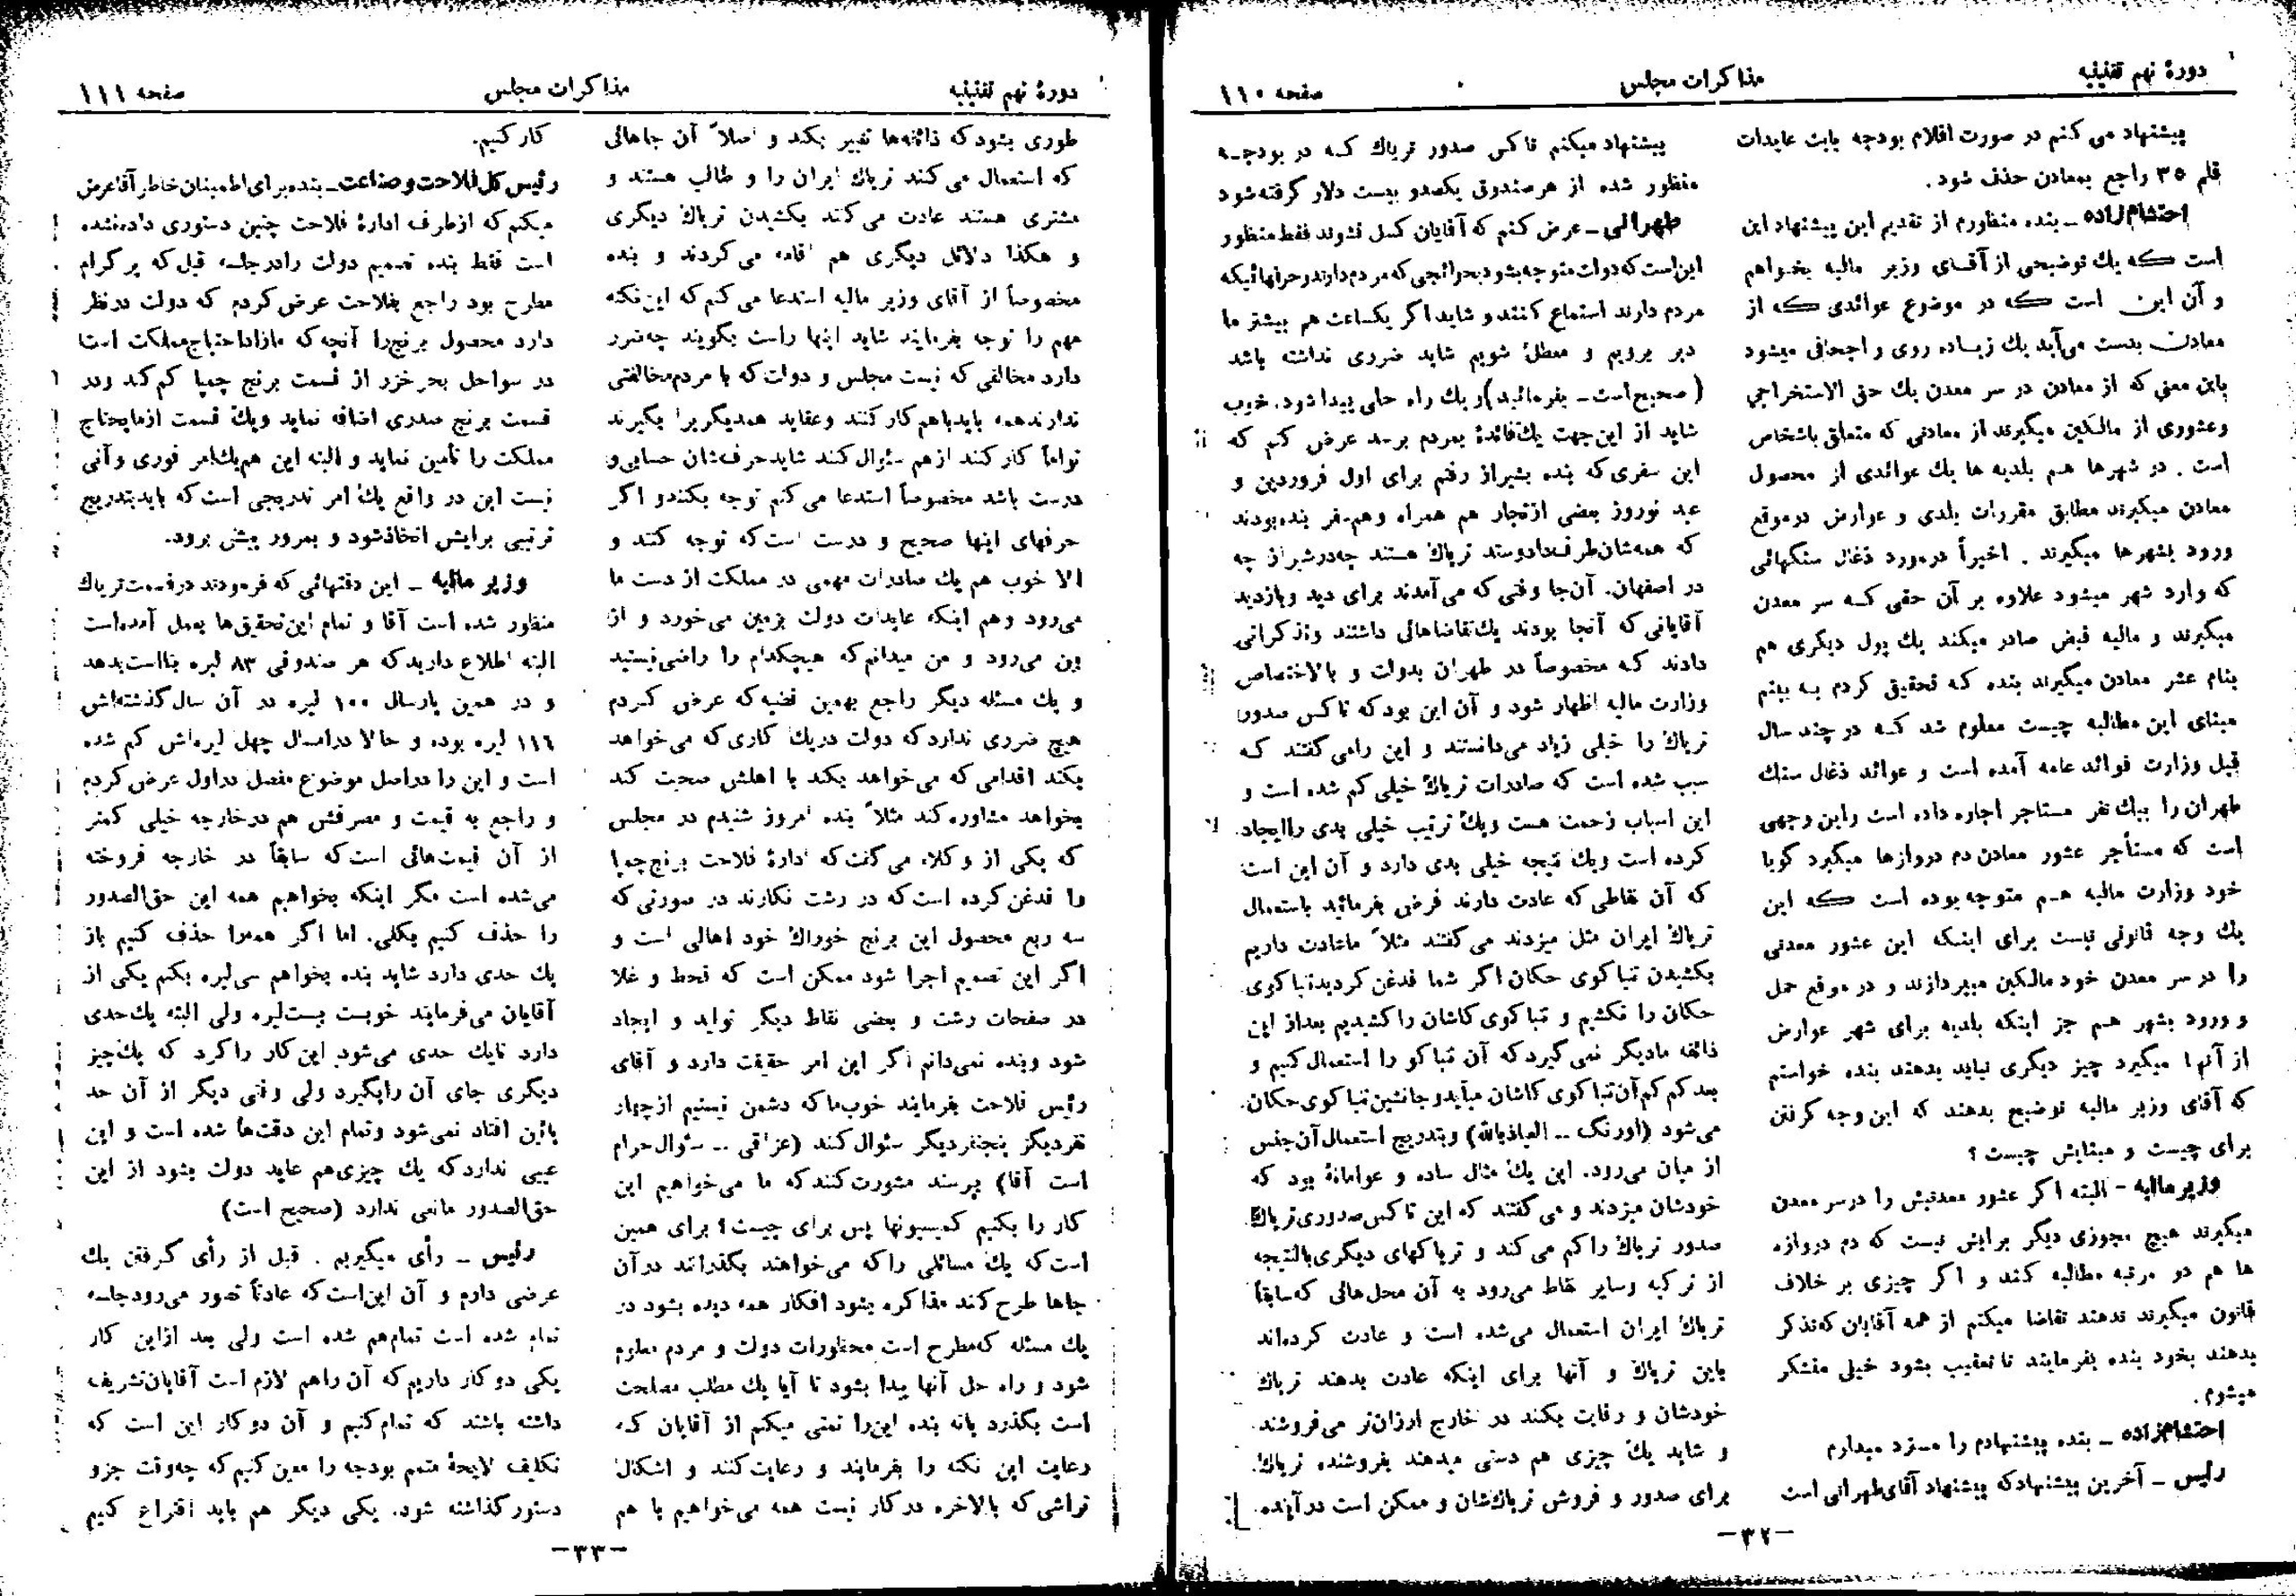 دورهٔ نهم تقنینیه
مذاکرات مجلس
صفحه ۱۱۰
پیشنهاد می کنم در صورت اقلام بودجه بابت عایدات
قلم ۳۵ راجع بمعادن حذف شود.
احتشام‌زاده ـ بنده منظورم از تقدیم این پیشنهاد این
است که یك توضیحی از آقای وزیر مالیه بخواهم
و آن این است که در موضوع عوائدی که از
معادن بدست می‌آید یك زیاده روی و اجحافی میشود
باین معنی که از معادن در سر معدن یك حق الاستخراجی
وعشوری از مالکین میگیرند از معادنی که متعلق باشخاص
است . در شهرها هم بلدیه ها یك عوائدی از محصول
معادن میگیرند مطابق مقررات بلدی و عوارض در موقع
ورود بشهرها میگیرند . اخیراً در مورد ذغال سنگهائی
که وارد شهر میشود علاوه بر آن حقی که سر معدن
میگیرند و مالیه قبض صادر میکند یك پول دیگری هم
بنام عشر معادن میگیرند بنده که تحقیق کردم به بینم
مبنای این مطالبه چیست معلوم شد که در چند سال
قبل وزارت فوائد عامه آمده است و عوائد ذغال سنك
طهران را بیك نفر مستاجر اجاره داده است و این وجهی
است که مستأجر عشور معادن دم دروازها میگیرد گویا
خود وزارت مالیه هم متوجه بوده است که این
یك وجه قانونی نیست برای اینکه این عشور معدنی
را در سر معدن خود مالکین میپردازند و در موقع حمل
و ورود بشهر هم جز اینکه بلدیه برای شهر عوارض
از آنها میگیرد چیز دیگری نباید بدهند بنده خواستم
که آقای وزیر مالیه توضیح بدهند که این وجه گرفتن
برای چیست و مبنایش چیست ؟
وزیر مالیه - البته اگر عشور معدنیش را در سر معدن
میگیرند هیچ مجوزی دیگر برایش نیست که دم دروازه
ها هم دو مرتبه مطالبه کنند و اگر چیزی بر خلاف
قانون میگیرند ندهند تقاضا میکنم از همه آقایان که تذکر
بدهند بخود بنده بفرمایند تا تعقیب بشود خیلی متشکر
میشوم.
احتشام‌زاده ـ بنده پیشنهادم را مسترد میدارم
رئیس ـ آخرین پیشنهاد که پیشنهاد آقای طهرانی است
پیشنهاد میکنم تاکس صدور تریاك که در بودجه
منظور شده از هر صندوق یکصد و بیست دلار گرفته شود
طهرانی ـ عرض کنم که آقایان کسل نشوند فقط منظور
این است که دولت متوجه بشود بحوائجی که مردم دارند و حرفهائیکه
مردم دارند استماع کنند و شاید اگر یکساعت هم بیشتر ما
دیر برویم و معطل شویم شاید ضرری نداشته باشد
(صحیح است ـ بفرمائید) و یك راه حلی پیدا شود. خوب
شاید از این جهت یك فائدهٔ بمردم برسد عرض کنم که
این سفری که بنده بشیراز رفتم برای اول فروردین و
عید نوروز بعضی از تجار هم همراه و هم‌سفر بنده بودند
که همه‌شان طرف داد وستد تریاك هستند چه در شیراز چه
در اصفهان. آن‌جا وقتی که می‌آمدند برای دید و بازدید
آقایانی که آنجا بودند یك تقاضاهائی داشتند و تذکراتی
دادند که مخصوصاً در طهران بدولت و بالاختصاص
وزارت مالیه اظهار شود و آن این بود که تاکس صدور
تریاك را خیلی زیاد می‌دانستند و این را می گفتند که
سبب شده است که صادرات تریاك خیلی کم شده است و
این اسباب زحمت هست و یك ترتیب خیلی بدی را ایجاد
کرده است و یك نتیجه خیلی بدی دارد و آن این است
که آن نقاطی که عادت دارند فرض بفرمائید باستعمال
تریاك ایران مثل میزدند می گفتند مثلاً ما عادت داریم
بکشیدن تنباکوی حکان اگر شما قدغن کردید تنباکوی
حکان را نکشیم و تنباکوی کاشان را کشیدیم بعد از این
ذائقه ما دیگر نمی گیرد که آن تنباکو را استعمال کنیم و
بعد کم کم آن تنباکوی کاشان میآید و جانشین تنباکوی حکان
می‌شود (اورنگ .. العیاذ بالله) و بتدریج استعمال آن جنس
از میان می‌رود. این یك مثال ساده و عوامانهٔ بود که
خودشان میزدند و می گفتند که این تاکس صدوری تریاك
صدور تریاك را کم می کند و تریاکهای دیگری بالنتیجه
از ترکیه و سایر نقاط می‌رود به آن محل‌هائی که سابقاً
تریاك ایران استعمال می‌شده است و عادت کرده‌اند
باین تریاك و آنها برای اینکه عادت بدهند تریاك
خودشان و رقابت بکنند در خارج ارزان‌تر می‌فروشند
و شاید یك چیزی هم دستی میدهند بفروشنده تریاك
برای صدور و فروش تریاك‌شان و ممکن است در آینده
ـ۳۲ـ
دورهٔ نهم تقنینیه
مذاکرات مجلس
صفحه ۱۱۱
طوری بشود که ذائقه‌ها تغییر بکند و اصلاً آن جاهائی
که استعمال می کنند تریاك ایران را و طالب هستند و
مشتری هستند عادت می کنند بکشیدن تریاك دیگری
و هکذا دلائل دیگری هم اقامه می کردند و بنده
مخصوصاً از آقای وزیر مالیه استدعا می کنم که این نکته
مهم را توجه بفرمایند شاید اینها راست بگویند چه ضرر
دارد مخالفی که نیست مجلس و دولت که با مردم مخالفتی
ندارند همه باید با هم کار کنند و عقاید همدیگر را بگیرند
تواماً کار کنند از هم سئوال کنند شاید حرف‌شان حسابی و
درست باشد مخصوصاً استدعا می کنم توجه بکنند و اگر
حرفهای اینها صحیح و درست است که توجه کنند و
الا خوب هم یك صادرات مهمی در مملکت از دست ما
می‌رود و هم اینکه عایدات دولت بزمین می‌خورد و از
بین می‌رود و من میدانم که هیچکدام را راضی نیستید
و یك مسئله دیگر راجع بهمین قضیه که عرض کردم
هیچ ضرری ندارد که دولت در یك کاری که می‌خواهد
بکند اقدامی که می‌خواهد بکند با اهلش صحبت کند
بخواهد مشاوره کند مثلاً بنده امروز شنیدم در مجلس
که یکی از وکلاء می گفت که ادارهٔ فلاحت برنج چمپا
را قدغن کرده است که در رشت نکارند در صورتی که
سه ربع محصول این برنج خوراك خود اهالی است و
اگر این تصمیم اجرا شود ممکن است که قحط و غلا
در صفحات رشت و بعضی نقاط دیگر تولید و ایجاد
شود و بنده نمی‌دانم اگر این امر حقیقت دارد و آقای
رئیس فلاحت بفرمایند خوب ما که دشمن نیستیم از چهار
نفر دیگر پنج نفر دیگر سئوال کنند (عراقی .. سئوال حرام
است آقا) بپرسند مشورت کنند که ما می‌خواهیم این
کار را بکنیم کمیسیونها پس برای چیست؟ برای همین
است که یك مسائلی را که می‌خواهند بگذرانند در آن
جاها طرح کنند مذاکره بشود افکار همه دیده بشود در
یك مسئله که مطرح است محظورات دولت و مردم معلوم
شود و راه حل آنها پیدا بشود تا آیا یك مطلب مصلحت
است بگذرد یا نه بنده این‌را تمنی میکنم از آقایان که
رعایت این نکته را بفرمایند و رعایت کنند و اشکال
تراشی که بالاخره در کار نیست همه می‌خواهیم با هم
کار کنیم.
رئیس کل فلاحت و صناعت ـ بنده برای اطمینان خاطر آقا عرض
میکنم که از طرف ادارهٔ فلاحت چنین دستوری داده نشده
است فقط بنده تصمیم دولت را در جلسه قبل که پرگرام
مطرح بود راجع بفلاحت عرض کردم که دولت در نظر
دارد محصول برنج را آنچه که مازاد احتیاج مملکت است
در سواحل بحر خزر از قسمت برنج چمپا کم کند و در
قسمت برنج صدری اضافه نماید و یك قسمت از مایحتاج
مملکت را تأمین نماید و البته این هم یك امر فوری و آنی
نیست این در واقع یك امر تدریجی است که باید بتدریج
ترتیبی برایش اتخاذ شود و بمرور پیش برود.
وزیر مالیه ـ این دقتهائی که فرمودند در قسمت تریاك
منظور شده است آقا و تمام این تحقیق‌ها بعمل آمده است
البته اطلاع دارید که هر صندوقی ۸۳ لیره بنا است بدهد
و در همین پارسال ۱۰۰ لیره در آن سال گذشته‌اش
۱۱۶ لیره بوده و حالا در امسال چهل لیره‌اش کم شده
است و این را در اصل موضوع مفصل در اول عرض کردم
و راجع به قیمت و مصرفش هم در خارجه خیلی کمتر
از آن قیمت‌هائی است که سابقاً در خارجه فروخته
می‌شده است مگر اینکه بخواهیم همه این حق‌الصدور
را حذف کنیم بکلی. اما اگر همه‌را حذف کنیم باز
یك حدی دارد شاید بنده بخواهم سی‌لیره بکنم یکی از
آقایان می‌فرمایند خوبست بیست‌لیره ولی البته یك حدی
دارد تایك حدی می‌شود این کار را کرد که یك چیز
دیگری جای آن را بگیرد ولی وقتی دیگر از آن حد
پائین افتاد نمی‌شود و تمام این دقت‌ها شده است و این
عیبی ندارد که یك چیزی هم عاید دولت بشود از این
حق‌الصدور مانعی ندارد (صحیح است)
رئیس ـ رأی میگیریم . قبل از رأی گرفتن یك
عرضی دارم و آن این‌است که عادتاً تصور می‌رود جلسه
تمام شده است تمام هم شده است ولی بعد از این کار
یکی دو کار داریم که آن را هم لازم است آقایان تشریف
داشته باشند که تمام کنیم و آن دو کار این است که
تکلیف لایحهٔ متمم بودجه را معین کنیم که چه وقت جزو
دستور گذاشته شود. یکی دیگر هم باید اقتراع کنیم
ـ۳۳ـ